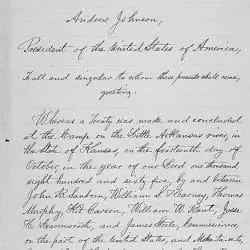 Andrew Johnson,
President of the United States of America,
To all and singular to whom these presents shall come,
greeting:
Whereas a Treaty was made and concluded
at the Camp on the Little Arkansas river, in
the State of Kansas, on the fourteenth day of
October, in the year of our Lord one thousand
eight hundred and sixty five, by and between
John B. Sanborn, William S. Harney, Thomas
Murphy, Kit Carson, William W. Bent, Jesse
H. Leavenworth, and James Steele, Commissioners,
on the part of the United States, and